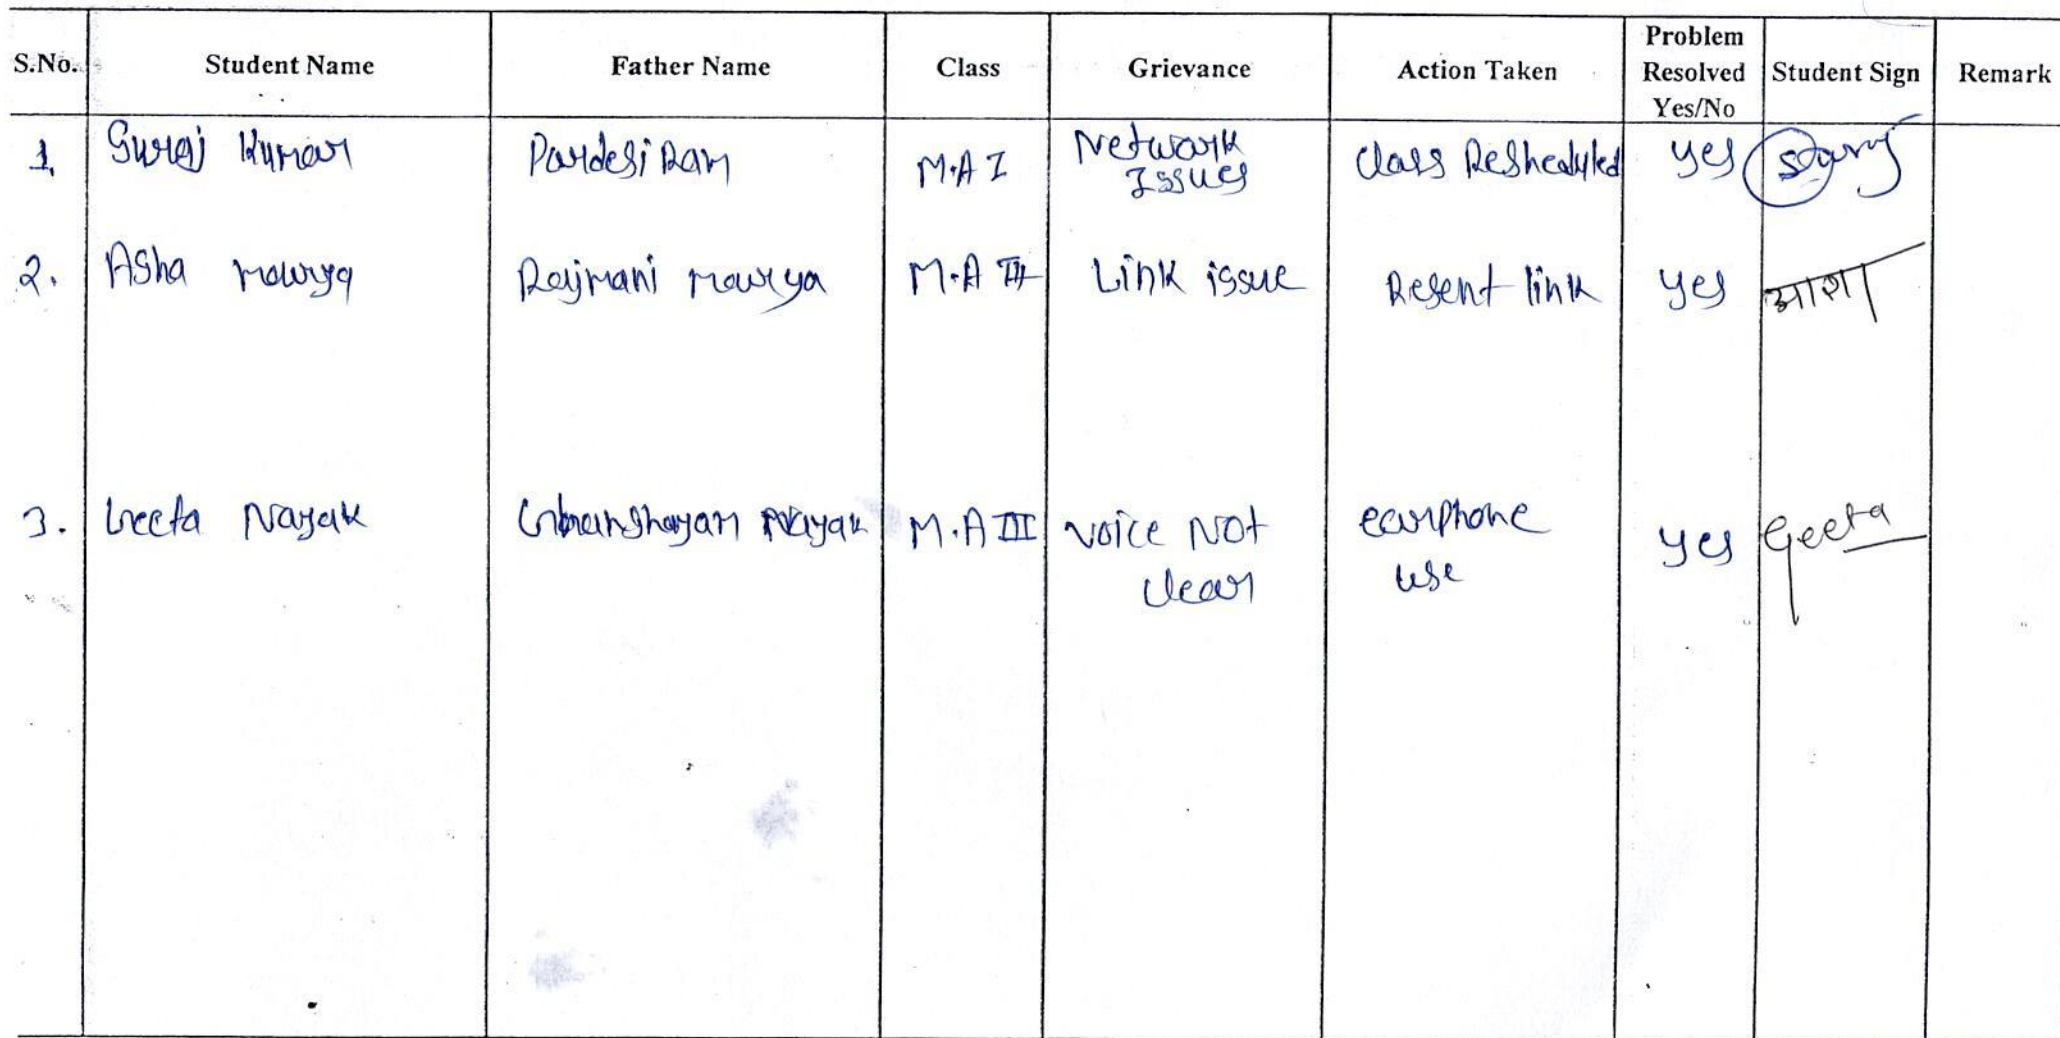 S.No. Student Name Father Name Class Grievance Action Taken Problem Resolved Yes/No Student Sign Remark
1. Suraj Kumar Pardesi Ram M.A I Network Issues Class Resheduled yes
2. Asha Mourya Rajmani Mourya M.A III Link issue Resent link yes आशा
3. Geeta Nayak Ghanshayam Nayak M.A III Voice Not clear earphone use yes Geeta